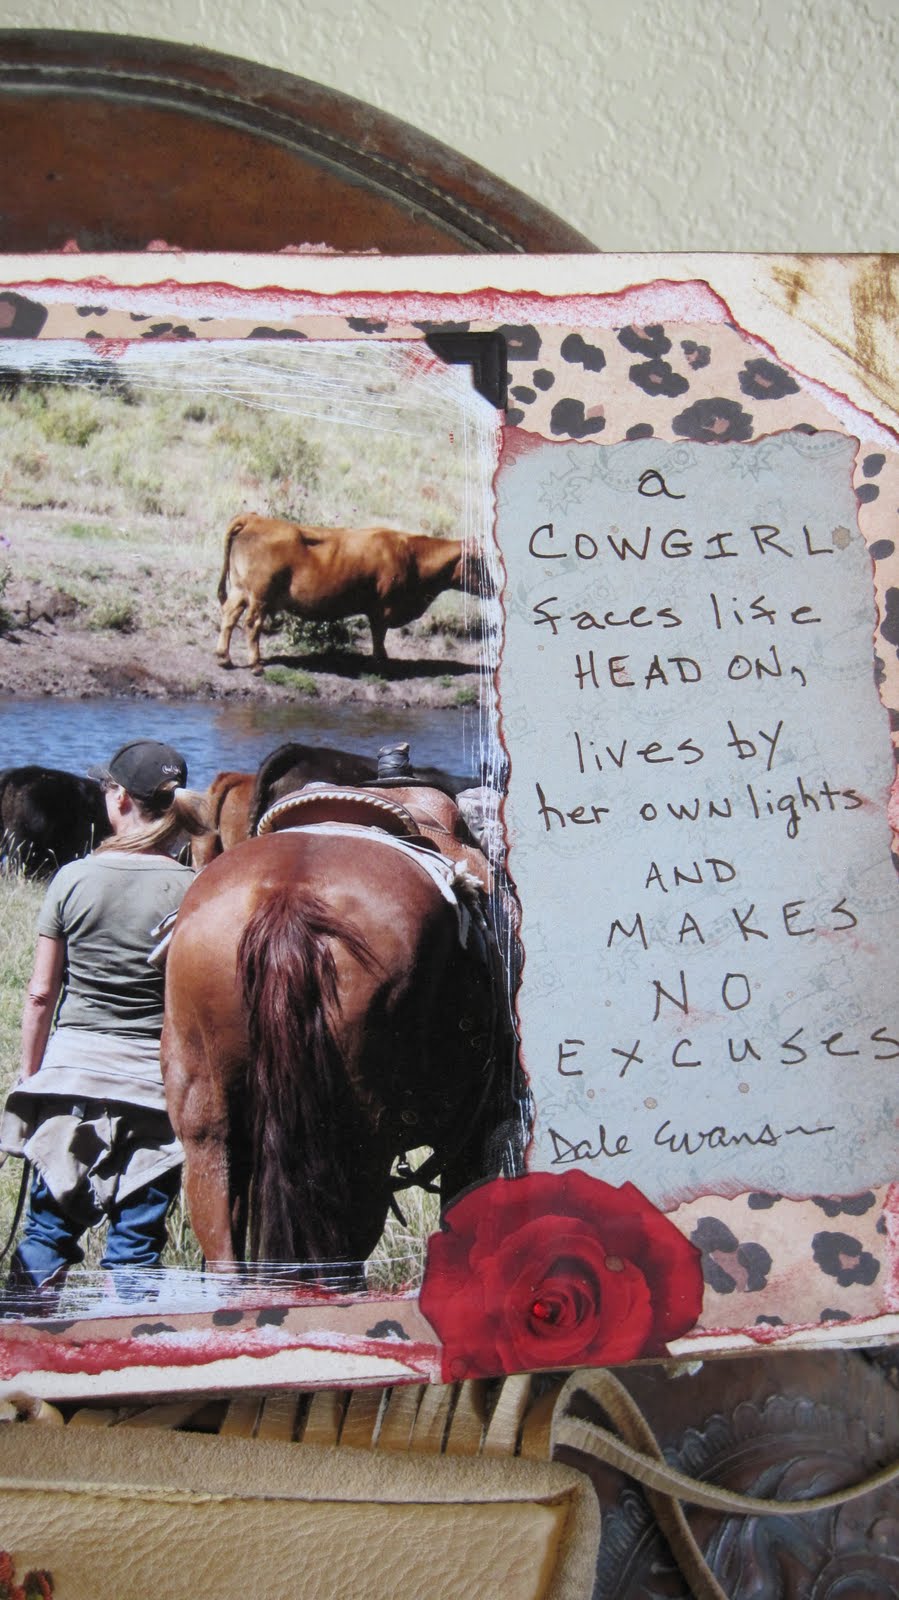 a
COWGIRL
faces life
HEAD ON,
lives by
her OWN lights
AND
MAKES
NO
EXCUSES
Dale Evans